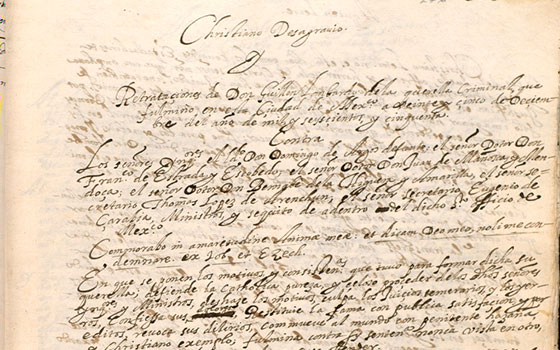 Christiano Desagrauio.
y
Retrataciones de Don Guillen Lombardo dela querella Criminal, que
fulminó, en esta Ciudad de Mexco. a veinte y cinco de Deciem-
bre del año de mil y seiscientos, y cinquenta.
Contra
Los señores Ldo. Don Domingo de Assas, el señor Dor. Don
Franco. de Estrada y Escobedo, el señor Dotor Don Juan de Mañozca, y Men-
doça, el señor Dotor Don Bernabe de la Higuera, y Amarilla, el señor se-
cretario Thomas Lopez de Erenchun, el señor secretario, Eugenio de
Carabia, Ministros, y sequito de adentro del dicho sto. officio de
Mexco.
Commorabo in amaritudine Animæ meæ: et dicam Deo meo, noli me con-
demnare. ex Job, et Ezech.
En que se ponen los motivos, y considen.as que tuvo para formar dicha su
querella; defiende la Catholica pureza, y zeloso proceder delos dhos señores
y Ministros, deshaze los motivos, culpa los Juicios temerarios, y los
ros, Confiessa sus Restituie la fama con publica satisfacion, y por
editos, revoca sus delirios, commueve al mundo con penitente hazaña,
y Christiano exemplo; fulmina contra si sentencia nunca vista en otro,